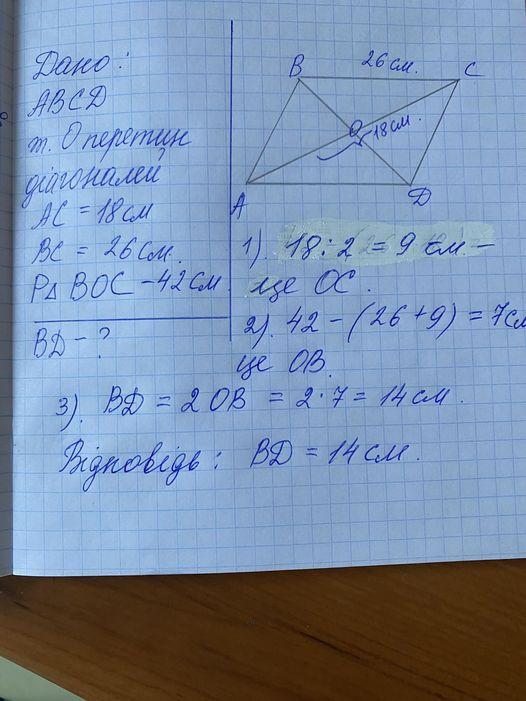 Дано:
ABCD
т. О перетин
діагоналей
AC = 18 см
BC = 26 см.
P△ BOC - 42 см.
BD - ?
B 26 см. C
O 18 см.
A D
1). 18 : 2 = 9 см -
це OC.
2). 42 - (26 + 9) = 7 см
це OB.
3). BD = 2 OB = 2 · 7 = 14 см.
Відповідь: BD = 14 см.